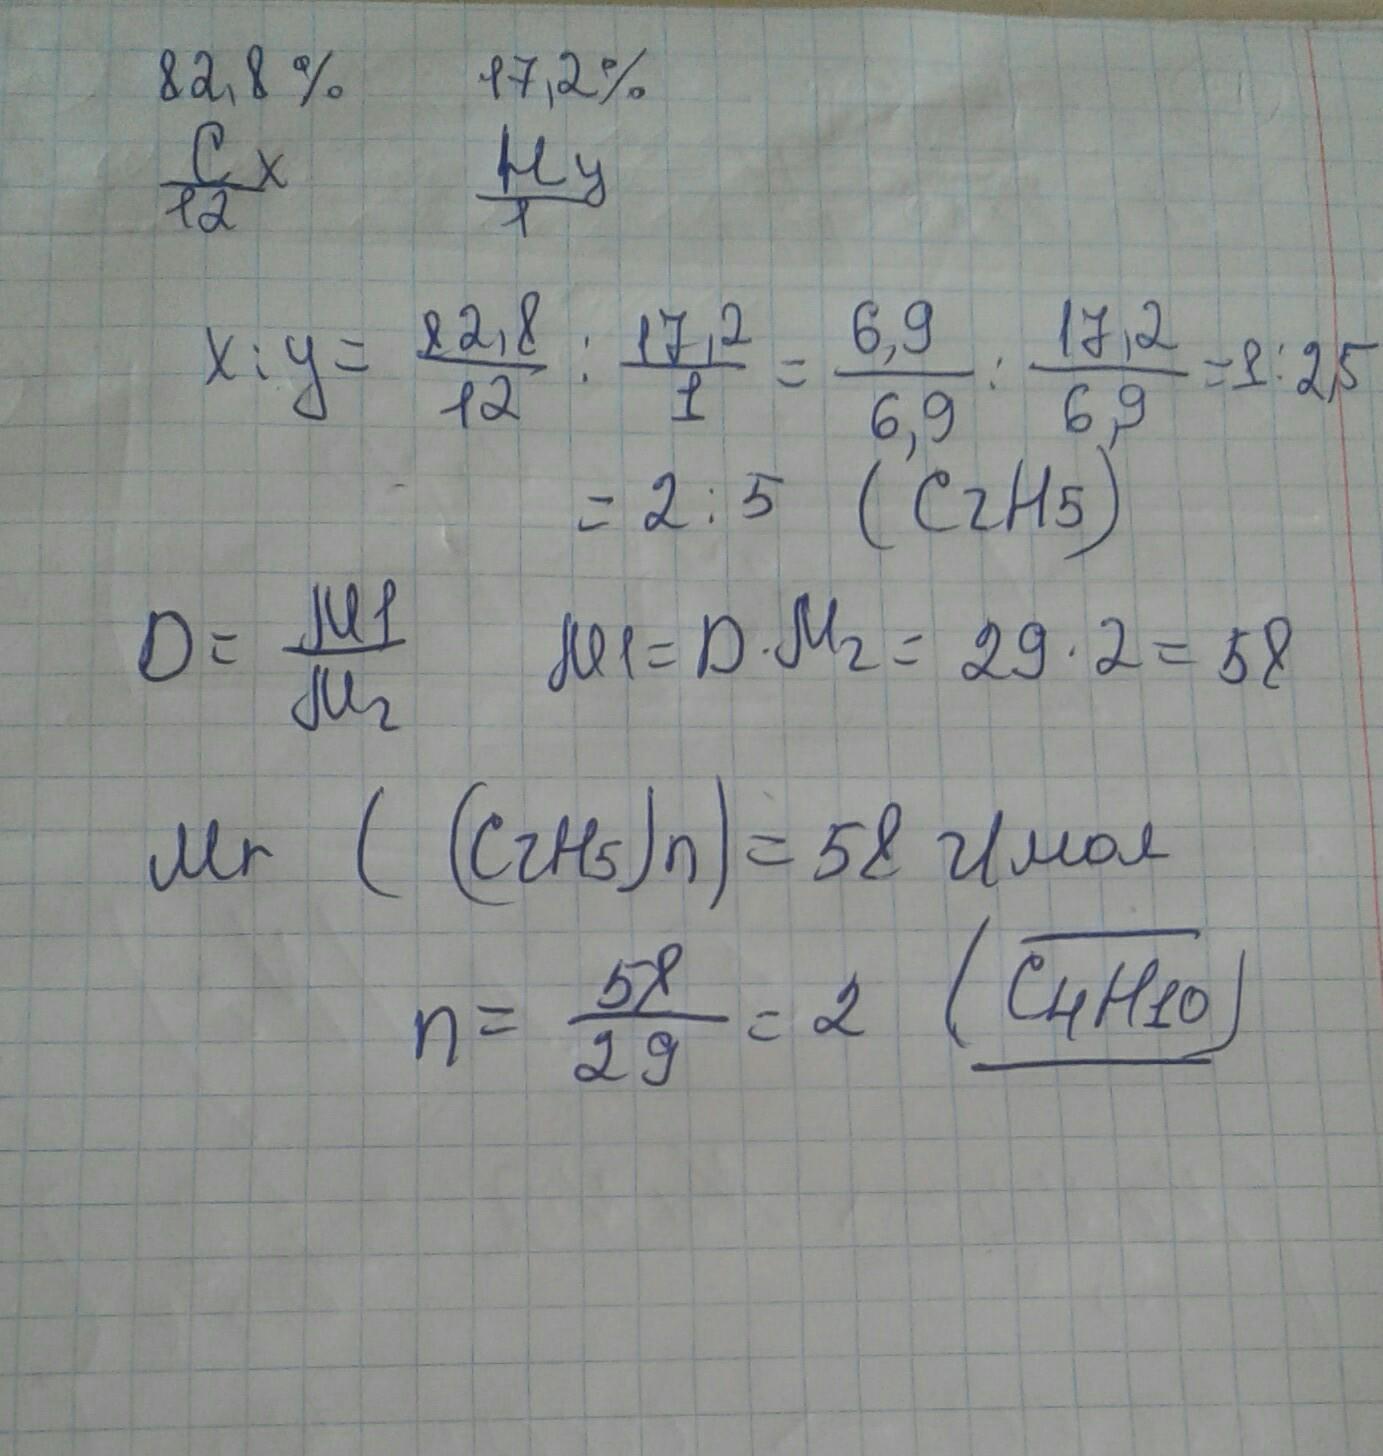 82,8% 17,2%
Cx/12 Hy/1
x:y = 82,8/12 : 17,2/1 = 6,9/6,9 : 17,2/6,9 = 1:2,5
= 2:5 (C2H5)
D = M1/M2 M1 = D·M2 = 29·2 = 58
Mr ((C2H5)n) = 58 г/мол
n = 58/29 = 2 (C4H10)